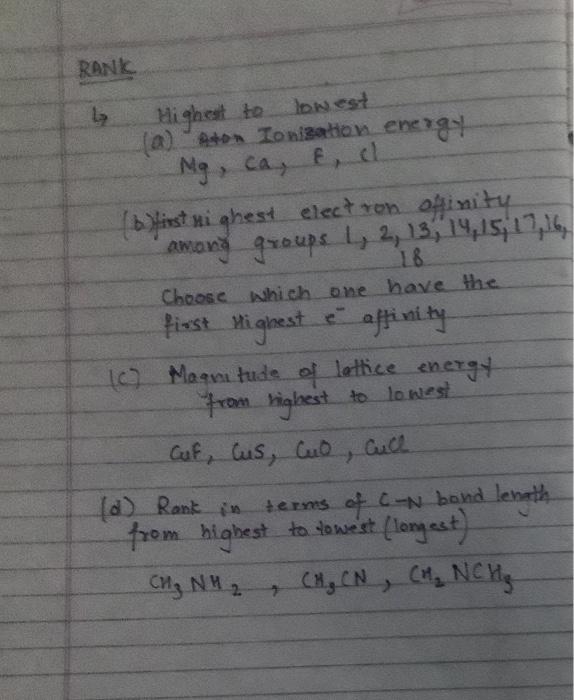 RANK
↳ Highest to lowest
(a) Ionization energy
Mg, Ca, F, Cl
(b) first Highest electron affinity
among groups 1, 2, 13, 14, 15, 17, 16,
18
Choose which one have the
first Highest e⁻ affinity
(c) Magnitude of lattice energy
from highest to lowest
CuF, CuS, CuO, CuCl
(d) Rank in terms of C-N bond length
from highest to lowest (longest)
CH₃NH₂, CH₃CN, CH₂NCH₃